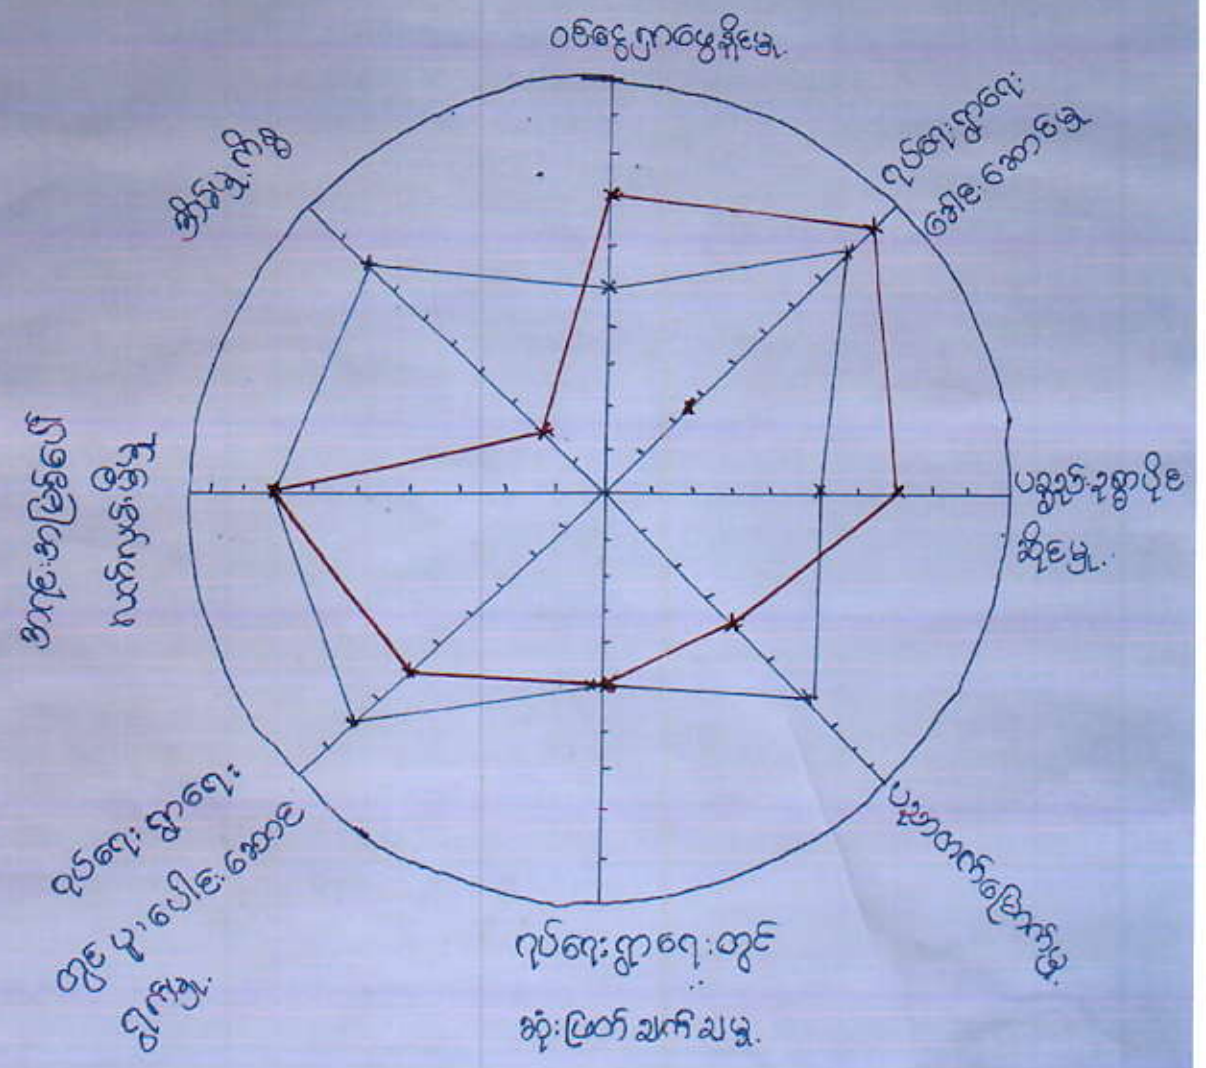 ဝင်ငွေရှာဖွေနိုင်မှု
ရပ်ရေးရွာရေး
ခေါင်းဆောင်မှု
ပစ္စည်းဥစ္စာပိုင်
ဆိုင်မှု.
ပညာတတ်မြောက်မှု.
ရပ်ရေးရွာရေးတွင်
ဆုံးဖြတ်ချက်ချမှု.
ရပ်ရေးရွာရေး
တွင်ပူးပေါင်းဆောင်
ရွက်မှု.
အရင်းအမြစ်ပေါ်
လက်လှမ်းမှီမှု
အိမ်မှုကိစ္စ